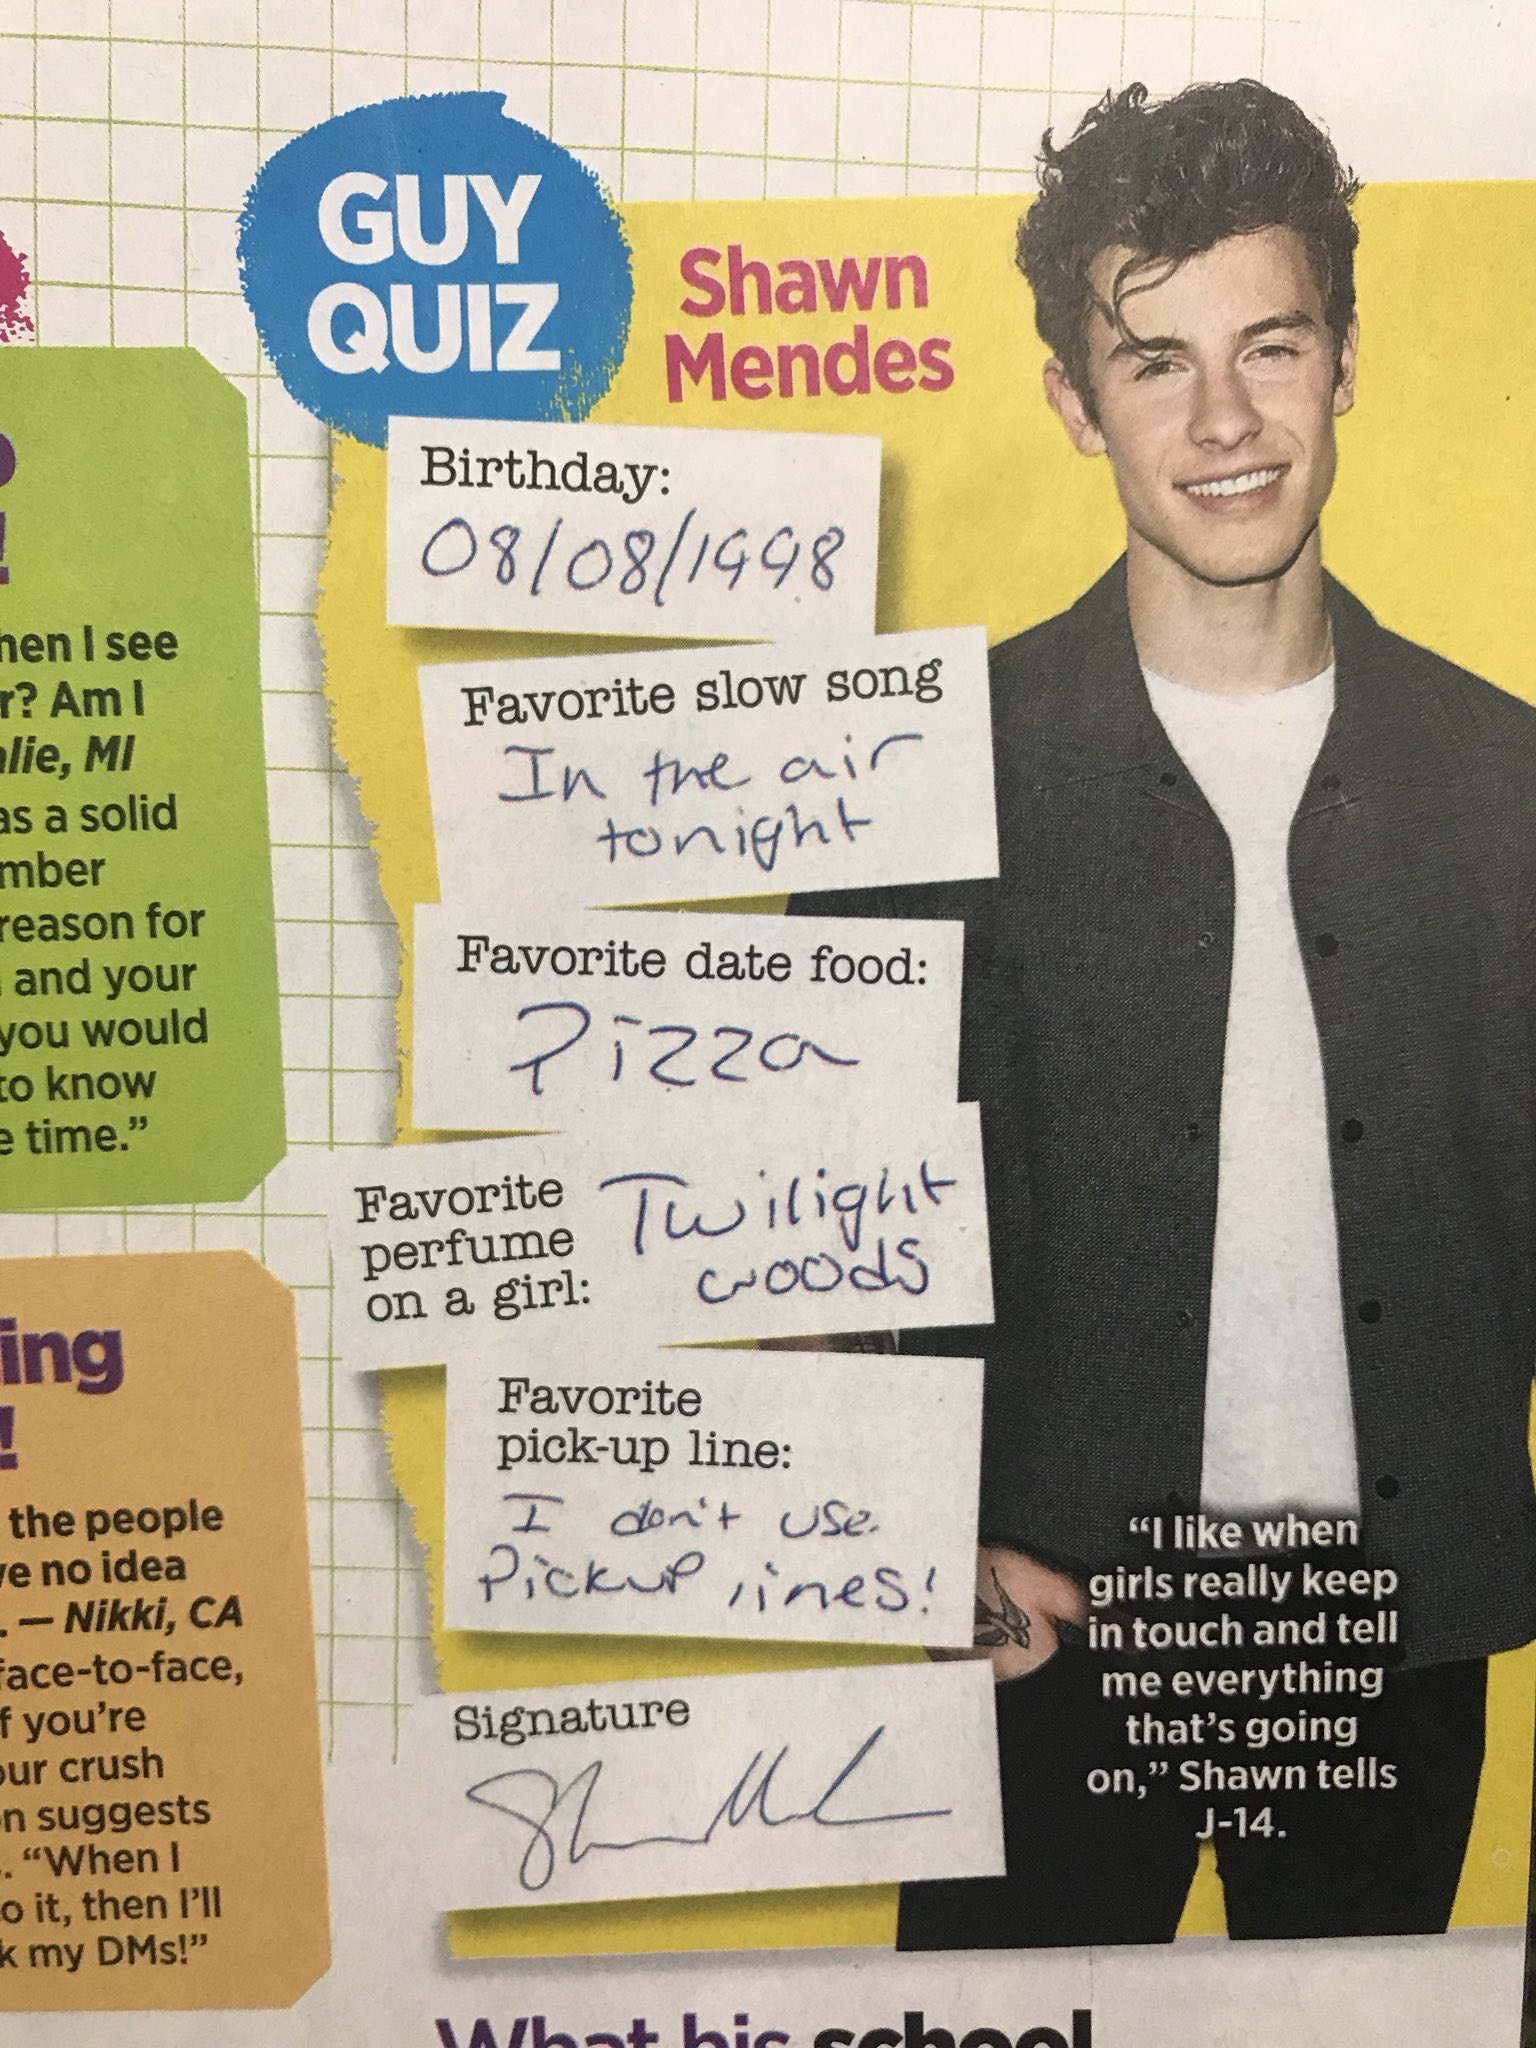 GUY
QUIZ
Shawn
Mendes
Birthday:
08/08/1998
Favorite slow song
In the air
tonight
Favorite date food:
Pizza
Favorite
perfume
on a girl:
Twilight
woods
Favorite
pick-up line:
I don't use
Pickup lines!
Signature
"I like when
girls really keep
in touch and tell
me everything
that's going
on," Shawn tells
J-14.
!
I see
r? Am I
MI
as a solid
reason for
and your
you would
to know
time."
ing
!
the people
no idea
. — Nikki, CA
face-to-face,
you're
crush
suggests
. "When I
it, then I'll
my DMs!"
What his school